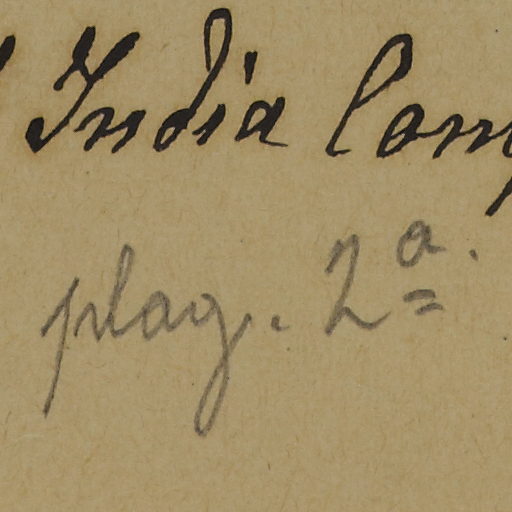 India Comp
plag. 2a.